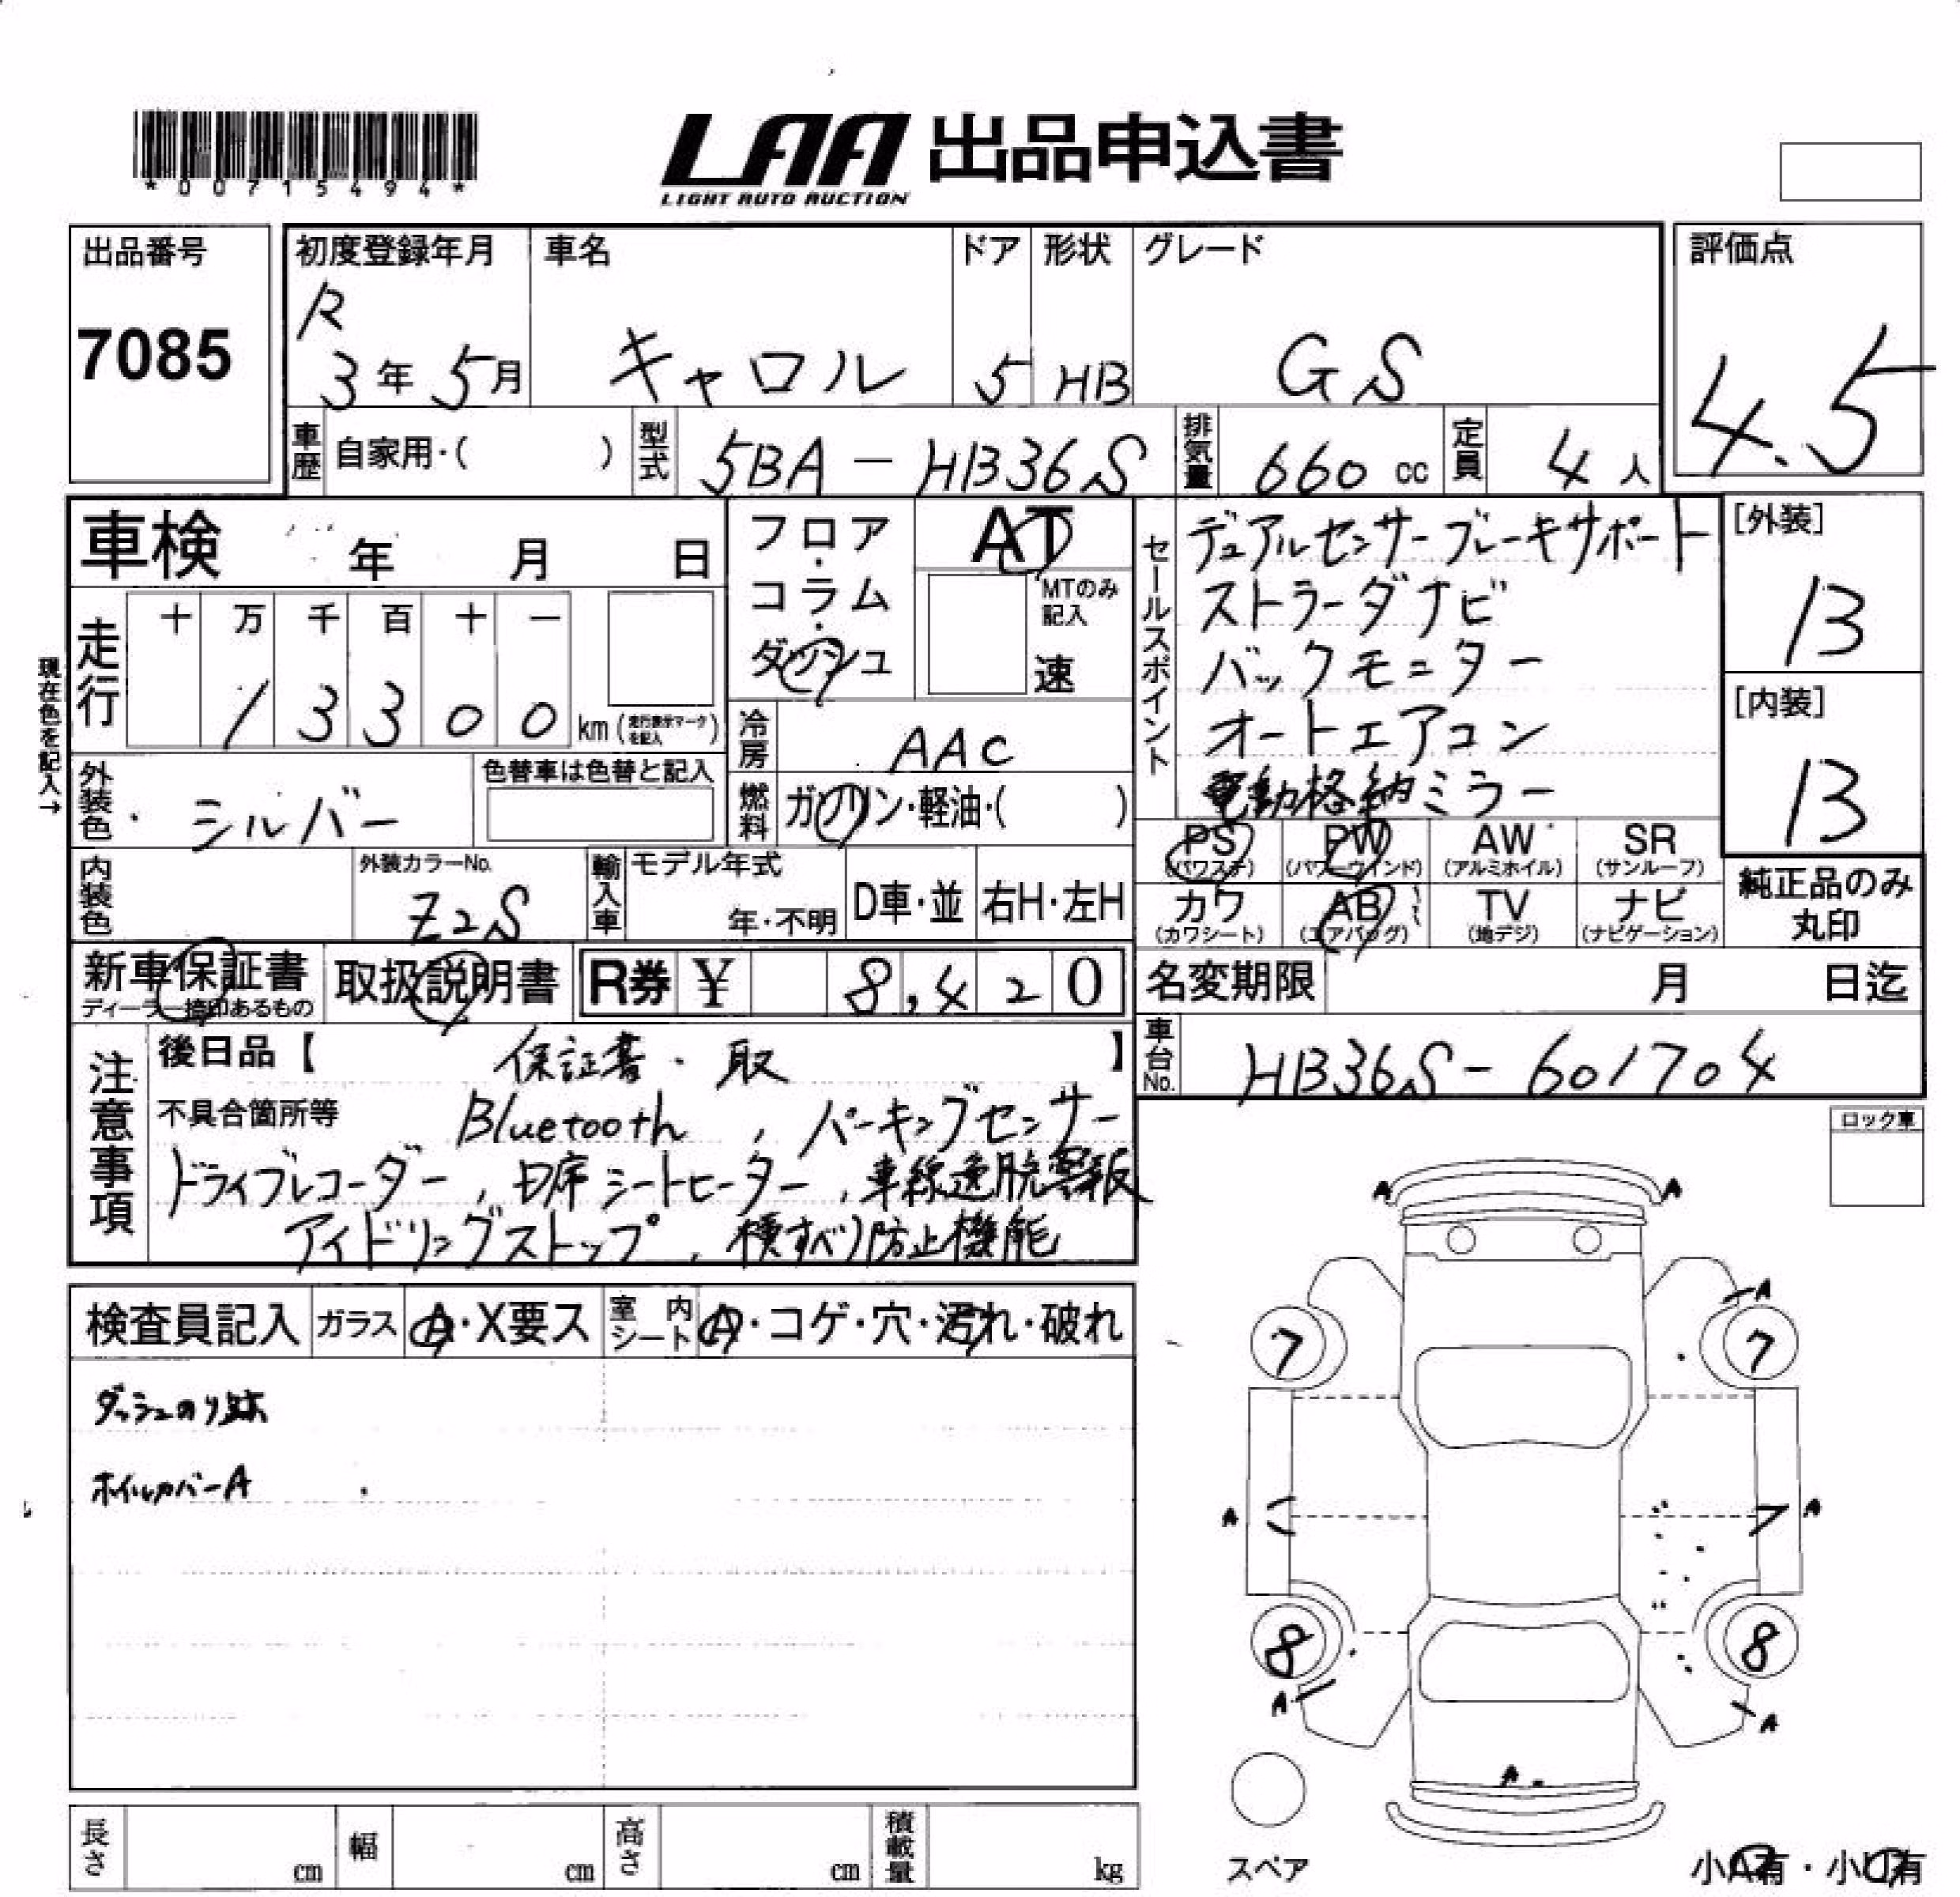 *00715494*
LAA 出品申込書
LIGHT AUTO AUCTION
出品番号
7085
初度登録年月
R
3年5月
車名
キャロル
ドア
5
形状
HB
グレード
GS
評価点
4.5
車歴 自家用・( )
型式 5BA-HB36S
排気量 660 cc
定員 4人
車検 年 月 日
フロア・コラム・ダッシュ
AT
MTのみ記入
速
セールスポイント
デュアルセンサーブレーキサポート
ストラーダナビ
バックモニター
オートエアコン
電動格納ミラー
[外装]
13
[内装]
13
現在色を記入→
走行
十 万 千 百 十 一
1 3 3 0 0 km (走行表示マークを記入)
冷房 AAC
外装色 シルバー
色替車は色替と記入
燃料 ガソリン・軽油・( )
PS (パワステ)
PW (パワーウインド)
AW (アルミホイル)
SR (サンルーフ)
カワ (カワシート)
AB (エアバッグ)
TV (地デジ)
ナビ (ナビゲーション)
純正品のみ丸印
内装色
外装カラーNo.
Z2S
輸入車
モデル年式
年・不明
D車・並
右H・左H
新車保証書
ディーラー捺印あるもの
取扱説明書
R券 ¥ 8,420
名変期限 月 日迄
車台No. HB36S-601704
注意事項
後日品【 保証書・取 】
不具合箇所等 Bluetooth, パーキングセンサー
ドライブレコーダー, D席シートヒーター, 車線逸脱警報
アイドリングストップ, 横すべり防止機能
ロック車
検査員記入
ガラス A・X要ス
室内シート A・コゲ・穴・汚れ・破れ
ダッシュのり跡
ホイルカバーA
A A
A
7 7
A A
8 8
A A
A
スペア
小A有・小U有
長さ cm
幅 cm
高さ cm
積載量 kg